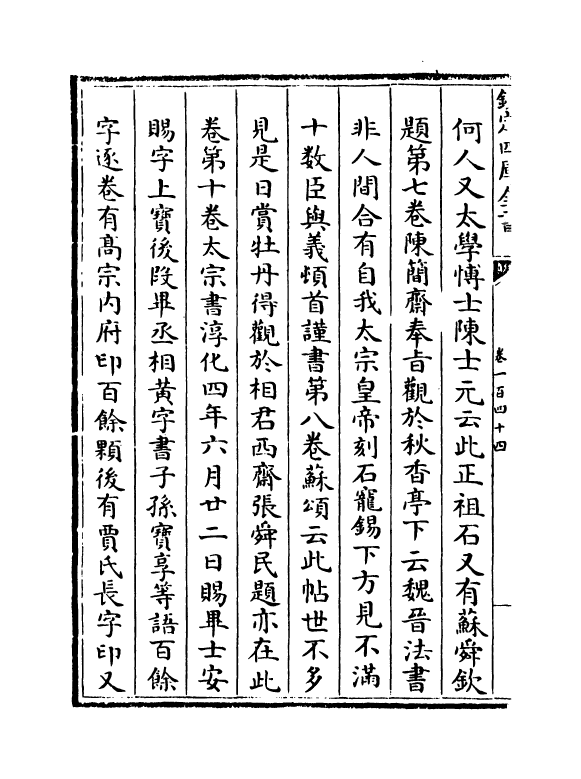 欽定四庫全書
卷一百四十四
何人又太學愽士陳士元云此正祖石又有蘇舜欽
題第七卷陳簡齋奉旨觀於秋香亭下云魏晉法書
非人間合有自我太宗皇帝刻石寵錫下方見不滿
十数臣與義頓首謹書第八卷蘇頌云此帖世不多
見是日賞牡丹得觀於相君西齋張舜民題亦在此
卷第十卷太宗書淳化四年六月廿二日賜畢士安
賜字上寳後段畢丞相黄字書子孫寳享等語百餘
字逐卷有髙宗内府印百餘顆後有賈氏長字印又